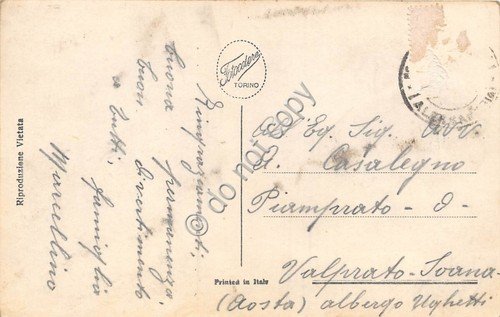 Riproduzione Vietata
Fotocelere
TORINO
Ringraziamenti,
buona permanenza,
buon divertimento
a tutti,
famiglia
Marcellino
Al Eg. Sig. Avv.
Casalegno
Piamprato - 
Valprato - Soana -
(Aosta) albergo Ughetti
Printed in Italy
© do not copy